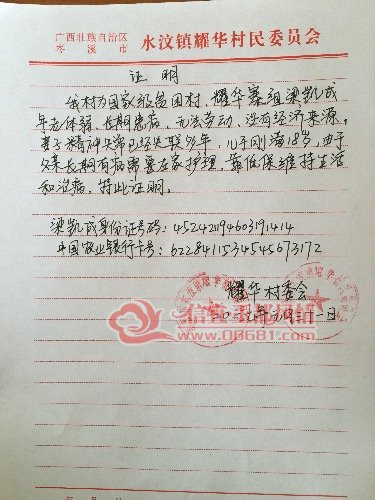 广西壮族自治区
岑溪市 水汶镇耀华村民委员会
证明
我村为国家级贫困村，耀华寨组梁凯成
年老体弱，长期患病，无法劳动，没有经济来源。
妻子精神失常已经失联多年，儿子刚满18岁，由于
父亲长期有病需要在家护理，靠低保维持生活
和治病，特此证明。
梁凯成身份证号码：45242194603191414
中国农业银行卡号：6228411534545673172
耀华村委会
信宜玉都网络
www.06681.com